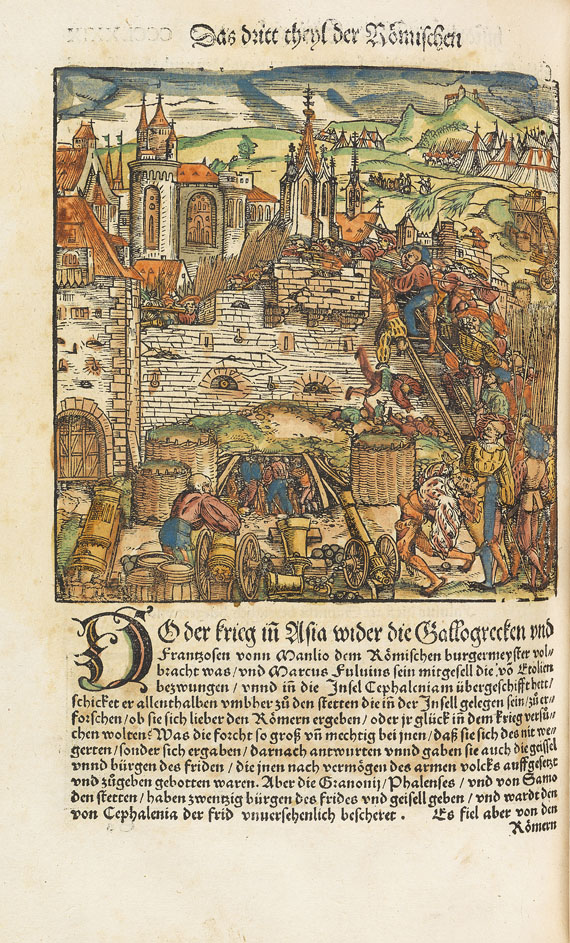 Das dritt theyl der Römischen
DO der krieg iñ Asia wider die Gallogrecken vnd
Frantzosen vonn Manlio dem Römischen burgermeyster vol-
bracht was / vnd Marcus Fuluius sein mitgesell die võ Etolien
bezwungen / vnnd iñ die Insel Cephaleniam übergeschifft hett /
schicket er allenthalben vmbher zů den stetten die in der Insell gelegen sein / zů er-
forschen / ob sie sich lieber den Römern ergeben / oder jr glück in dem krieg versů-
chen wolten? Was die forcht so groß vñ mechtig bei jnen / daß sie sich des nit we-
gerten / sonder sich ergaben / darnach antwurten vnnd gaben sie auch die geissel
vnnd bürgen des friden / die jnen nach vermögen des armen volcks auffgesetzt
vnd zůgeben gebotten waren. Aber die Granonij / Phalenses / vnd von Samo
den stetten / haben zwentzig bürgen des frides vnd geisell geben / vnd wardt den
von Cephalenia der frid vnuersehenlich bescheret . Es fiel aber von den
Römern